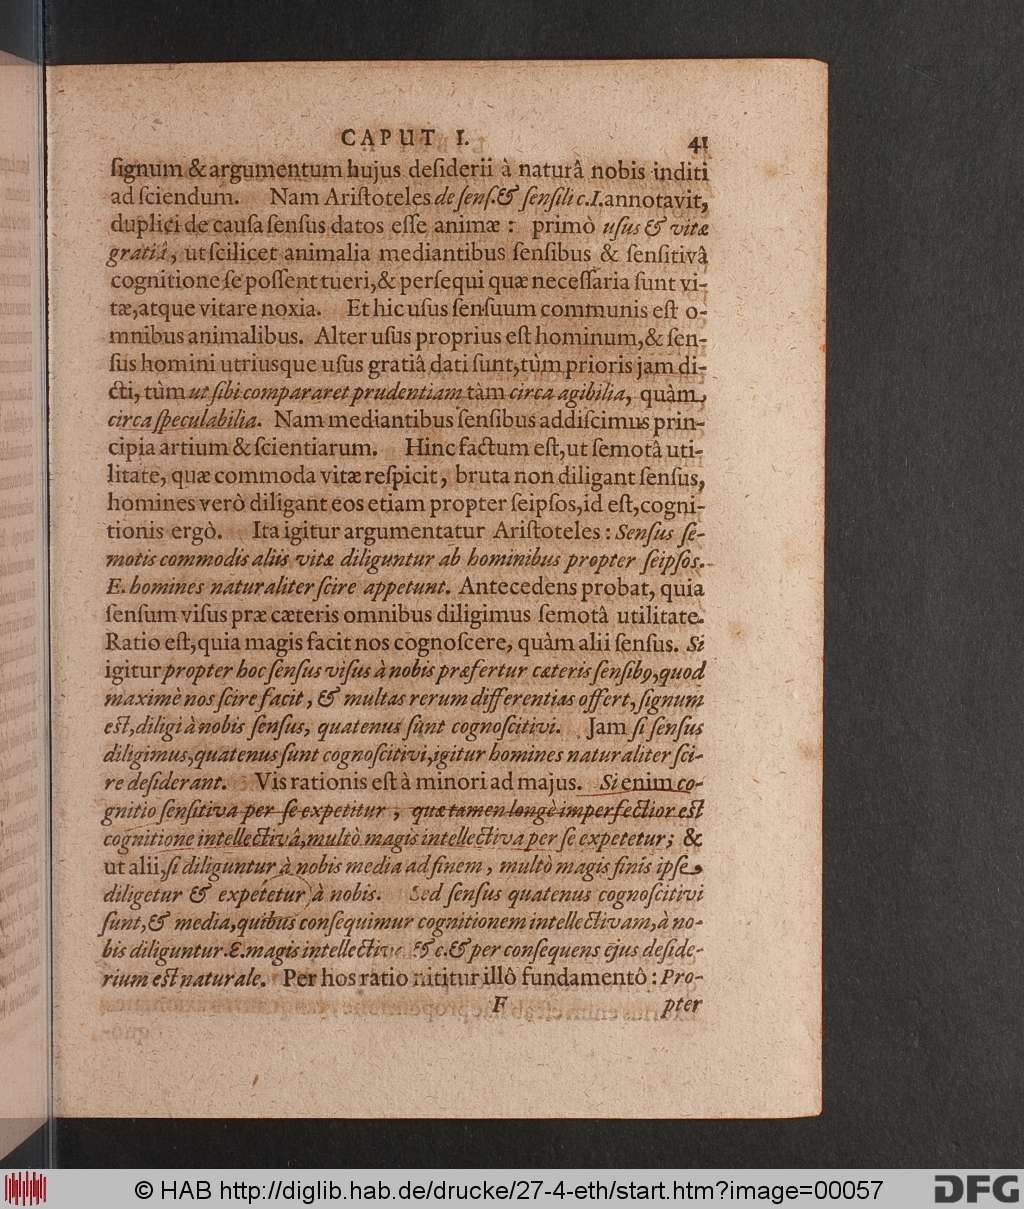 CAPUT I. 41
ſignum & argumentum hujus deſiderii à naturâ nobis inditi
ad ſciendum. Nam Ariſtoteles de ſenſ. & ſenſili c. I. annotavit,
duplici de cauſa ſenſus datos eſſe animæ : primò uſus & vitæ
gratiâ, ut ſcilicet animalia mediantibus ſenſibus & ſenſitivâ
cognitione ſe poſſent tueri, & perſequi quæ neceſſaria ſunt vi-
tæ, atque vitare noxia. Et hic uſus ſenſuum communis eſt o-
mnibus animalibus. Alter uſus proprius eſt hominum, & ſen-
ſus homini utriusque uſus gratiâ dati ſunt, tùm prioris jam di-
cti, tùm ut ſibi compararet prudentiam tàm circa agibilia, quàm
circa ſpeculabilia. Nam mediantibus ſenſibus addiſcimus prin-
cipia artium & ſcientiarum. Hinc factum eſt, ut ſemotâ uti-
litate, quæ commoda vitæ reſpicit, bruta non diligant ſenſus,
homines verò diligant eos etiam propter ſeipſos, id eſt, cogni-
tionis ergò. Ita igitur argumentatur Ariſtoteles : Senſus ſe-
motis commodis aliis vitæ diliguntur ab hominibus propter ſeipſos.
E. homines naturaliter ſcire appetunt. Antecedens probat, quia
ſenſum viſus præ cæteris omnibus diligimus ſemotâ utilitate.
Ratio eſt, quia magis facit nos cognoſcere, quàm alii ſenſus. Si
igitur propter hoc ſenſus viſus à nobis præfertur cæteris ſenſibꝰ, quod
maximè nos ſcire facit, & multas rerum differentias offert, ſignum
eſt, diligi à nobis ſenſus, quatenus ſunt cognoſcitivi. Jam ſi ſenſus
diligimus, quatenus ſunt cognoſcitivi, igitur homines naturaliter ſci-
re deſiderant. Vis rationis eſt à minori ad majus. Si enim co-
gnitio ſenſitiva per ſe expetitur, quæ tamen longè imperfectior eſt
cognitione intellectivâ, multò magis intellectiva per ſe expetetur; &
ut alii, ſi diliguntur à nobis media ad finem, multò magis finis ipſe
diligetur & expetetur à nobis. Sed ſenſus quatenus cognoſcitivi
ſunt, & media, quibus conſequimur cognitionem intellectivam, à no-
bis diliguntur. E. magis intellectiva & c. & per conſequens ejus deſide-
rium eſt naturale. Per hos ratio nititur illô fundamentô : Pro-
F pter
© HAB http://diglib.hab.de/drucke/27-4-eth/start.htm?image=00057 DFG